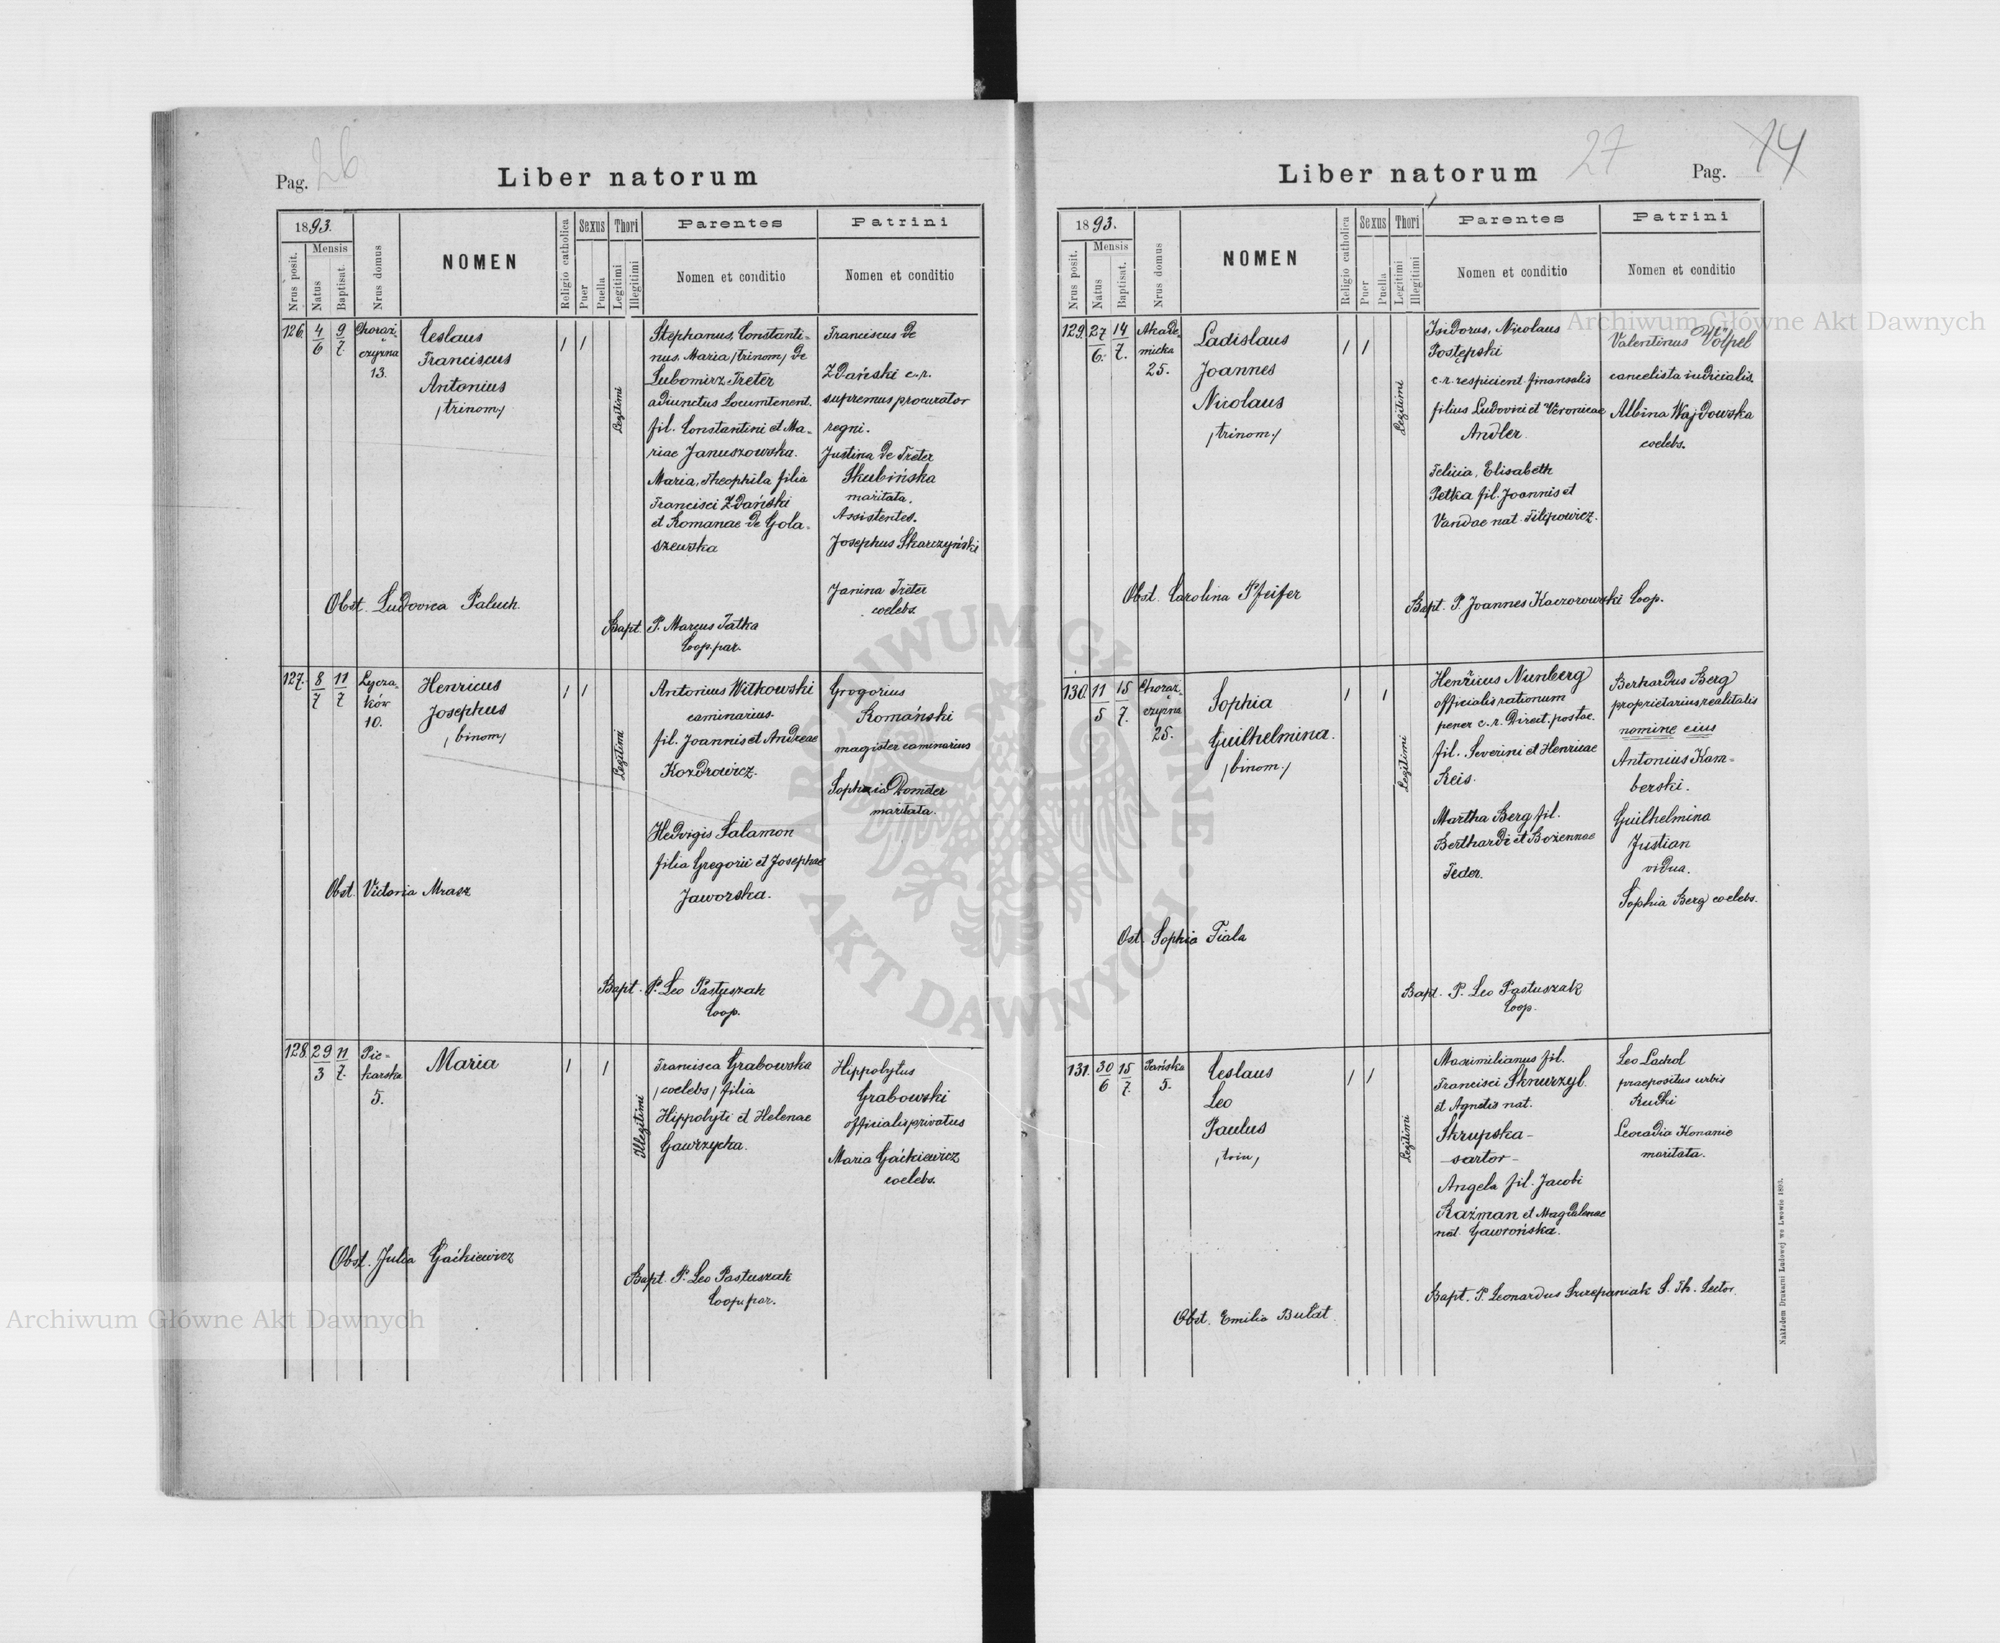 Pag. 26
Liber natorum
1893.
Mensis
Nrus posit.
Natus
Baptisat.
Nrus domus
NOMEN
Religio catholica
Sexus
Puer
Puella
Thori
Legitimi
Illegitimi
Parentes
Nomen et conditio
Patrini
Nomen et conditio
126. 4/6 9/7.
Chorąż-
czyzna
13.
Ceslaus
Franciscus
Antonius
/trinom/
/ /
Legitimi
Stephanus, Constanti-
nus, Maria /trinom/ de
Lubomirz Treter
adiunctus Locumtenent.
fil. Constantini et Ma-
riae Januszowska.
Maria, Theophila filia
Francisci Zdański
et Romanae de Gola-
szewska
Franciscus de
Zdański c. r.
supremus procurator
regni.
Justina de Treter
Skubińska
maritata.
Assistentes.
Josephus Skarczyński
Janina Treter
coelebs.
Obst. Ludovica Paluch.
Bapt. P. Marcus Tatka
Coop. par.
127. 8/7 11/7
Łycza-
ków
10.
Henricus
Josephus
/binom/
/ /
Legitimi
Antonius Witkowski
caminarius.
fil. Joannis et Andreae
Kozdrowicz.
Hedvigis Salamon
filia Gregorii et Josephae
Jaworska.
Grogorius
Romański
magister caminarius
Sophia Dometer
maritata.
Obst. Victoria Mrasz
Bapt. P. Leo Pastuszak
Coop.
128. 29/3 11/7.
Pie-
karska
5.
Maria
/ /
Illegitimi
Francisca Grabowska
/coelebs/ filia
Hippolyti et Helenae
Gawrzycka.
Hippolytus
Grabowski
officialis privatus
Maria Gaćkiewicz
coelebs.
Obst. Julia Gaćkiewicz
Bapt. P. Leo Pastuszak
Coop. par.
Liber natorum
27
Pag. 14
1893.
Mensis
Nrus posit.
Natus
Baptisat.
Nrus domus
NOMEN
Religio catholica
Sexus
Puer
Puella
Thori
Legitimi
Illegitimi
Parentes
Nomen et conditio
Patrini
Nomen et conditio
129. 27/6. 14/7.
Akade-
micka
25.
Ladislaus
Joannes
Nicolaus
/trinom./
/ /
Legitimi
Isidorus, Nicolaus
Postępski
c. r. respicient finansalis
filius Ludovici et Veronicae
Andler.
Felicia, Elisabeth
Petka fil. Joannis et
Vandae nat. Filipowicz.
Valentinus Völpel
cancelista iudicialis.
Albina Wajdowska
coelebs.
Obst. Carolina Pfeifer
Bapt. P. Joannes Kaczorowski Coop.
130. 11/5 15/7.
Chorąż-
czyzna
25.
Sophia
Guilhelmina.
/binom./
/ /
Legitimi
Henricus Nunberg
officialis rationum
pener c. r. Direct. postae.
fil. Severini et Henricae
Reis.
Martha Berg fil.
Berthardi et Bożennae
Feder.
Berhardus Berg
proprietarius realitatis
nomine eius
Antonius Kam-
berski.
Guilhelmina
Justian
vidua.
Sophia Berg coelebs.
Ost. Sophia Fiala
Bapt. P. Leo Pastuszak
Coop.
131. 30/6 15/7.
Pańska
5.
Ceslaus
Leo
Paulus
/trin/
/ /
Legitimi
Maximilianus fil.
Francisci Sknurzyl.
et Agnetis nat.
Skrupska-
-sartor-
Angela fil. Jacobi
Raźman et Magdalenae
nat. Gawrońska.
Leo Lachol
praepositus urbis
Rudki
Leocadia Konanic
maritata.
Bapt. P. Leonardus Szczepaniak S. Th. Lector.
Obst. Emilia Bulat
Nakładem Drukarni Ludowej we Lwowie 1893.
Archiwum Główne Akt Dawnych
Archiwum Główne Akt Dawnych
ARCHIWUM GŁÓWNE AKT DAWNYCH